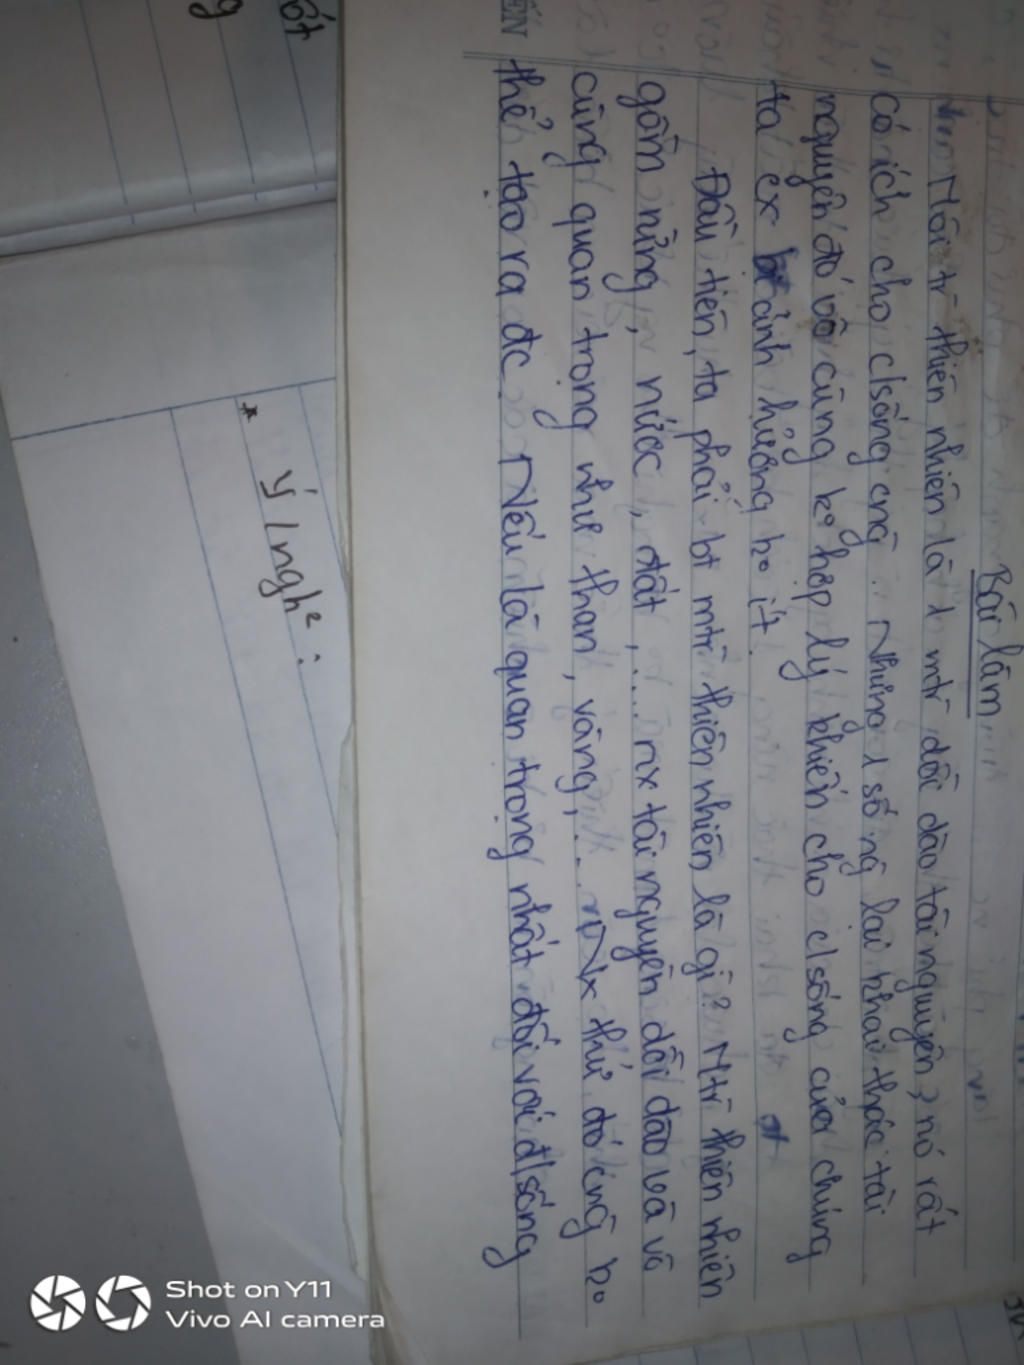 Bài làm
Môi tr thiên nhiên là 1 mtr dồi dào tài nguyên, nó rất
có ích cho c/sống cng. Nhưng 1 số ng lại khai thác tài
nguyên đó vô cùng ko hợp lý khiến cho c/sống của chúng
ta cx ảnh hưởng ko ít.
Đầu tiên, ta phải bt mtr thiên nhiên là gì? Mtr thiên nhiên
gồm rừng, nước, đất, ... nx tài nguyên dồi dào và vô
cùng quan trọng như than, vàng, ... Nx thứ đó cng ko
thể tạo ra đc. Nếu là quan trọng nhất đối với đ/sống
* Ý nghĩ :
ốt
g
ẾN
Shot on Y11
Vivo AI camera